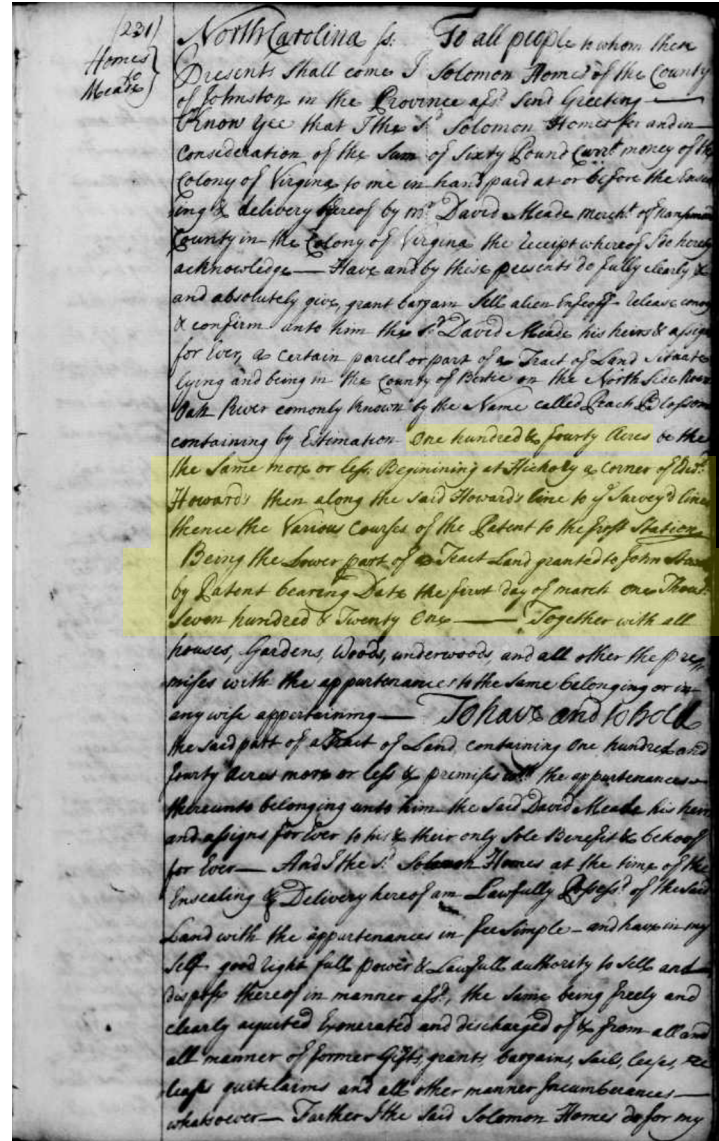 (231)
Homes
to
Meade
North Carolina ss. To all people to whom these
Presents Shall come I Solomon Homes of the County
of Johnston in the Province afsd. Send Greeting
Know Yee that I the sd. Solomon Homes for and in
Consideration of the Sum of Sixty Pound Currt. money of the
Colony of Virgina to me in hand paid at or before the Enseal
ing & delivery hereof by mr. David Meade mercht. of Nansemond
County in the Colony of Virgina the receipt whereof I do hereby
acknowledge — Have and by these presents do fully clearly &
and absolutely give, grant bargain Sell alien Enfeoff release convey
& confirm unto him the sd. David Meade his heirs & assigns
for Ever, a Certain parcel or part of a Tract of Land Situate
lying and being in the County of Bertie on the North Side Roan
Oak River comonly known by the Name called Peach Blossom
containing by Estimation One hundred & fourty Acres be the
the Same more or less. Beginining at Hickory a Corner of
Howards then along the said Howards line to ye Survey'd lines
thence the Various Courses of the Patent to the first Station
Being the Lower part of a Tract Land granted to John
by Patent bearing Date the first day of march One Thousd.
Seven hundred & Twenty One — Together with all
houses, Gardens, Woods, underwoods, and all other the pre
mises with the appurtenances to the same belonging or in
any wise appertaining — To have and to hold
the said part of a Tract of Land containing One hundred and
fourty Acres more or less & premises wth. the appurtenances
thereunto belonging unto him the Said David Meade his heirs
and assigns for Ever to his & their only Sole Benefit & behoof
for Ever — And I the sd. Solomon Homes at the time of the
Ensealing & Delivery hereof am Lawfully Possesd. of the Said
Land with the appurtenances in fee Simple — and have in my
Self good right full power & Lawfull authority to Sell and
dispose thereof in manner afsd., the same being freely and
clearly aquited Exonerated and discharged of & from all and
all manner of former Gifts, grants, bargains, Sails, leases, re
leases quitclaims and all other manner Incumberances
whatsoever — Farther I the said Solomon Homes do for my